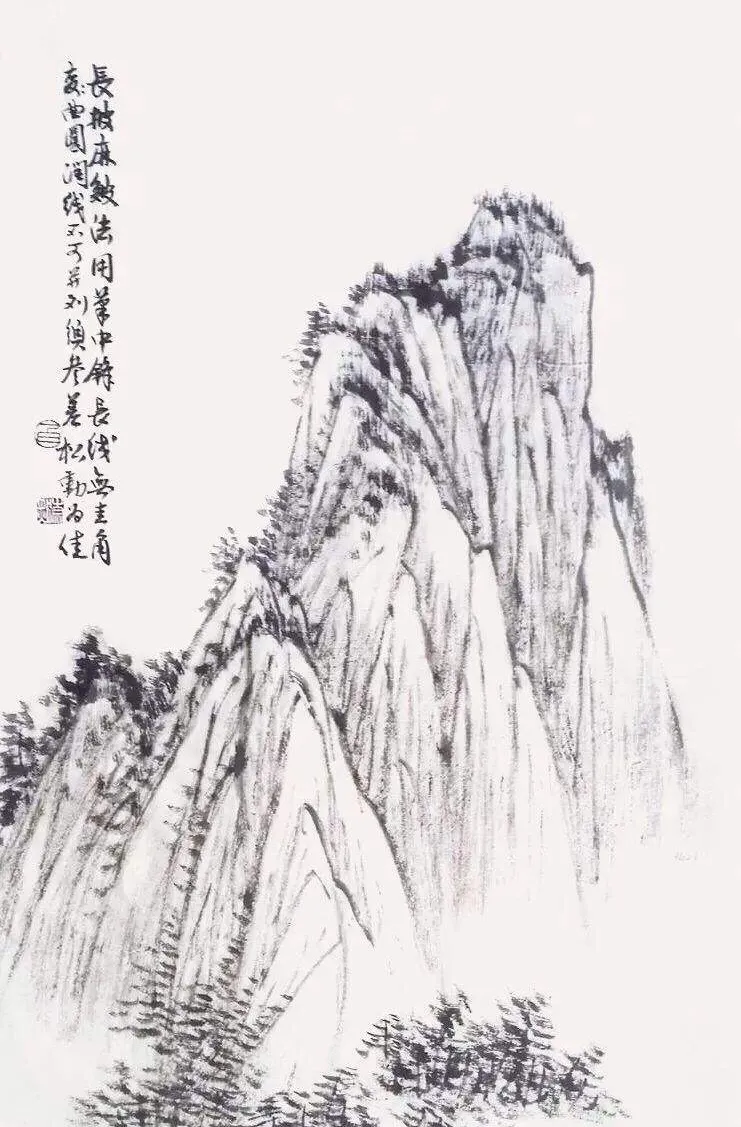 長披麻皴法用筆中鋒長线無圭角
弯曲圓潤线不可并列須参差松動为佳